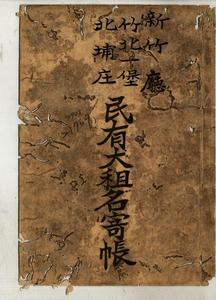 新竹廳
竹北一堡
北埔庄
民有大租名寄帳